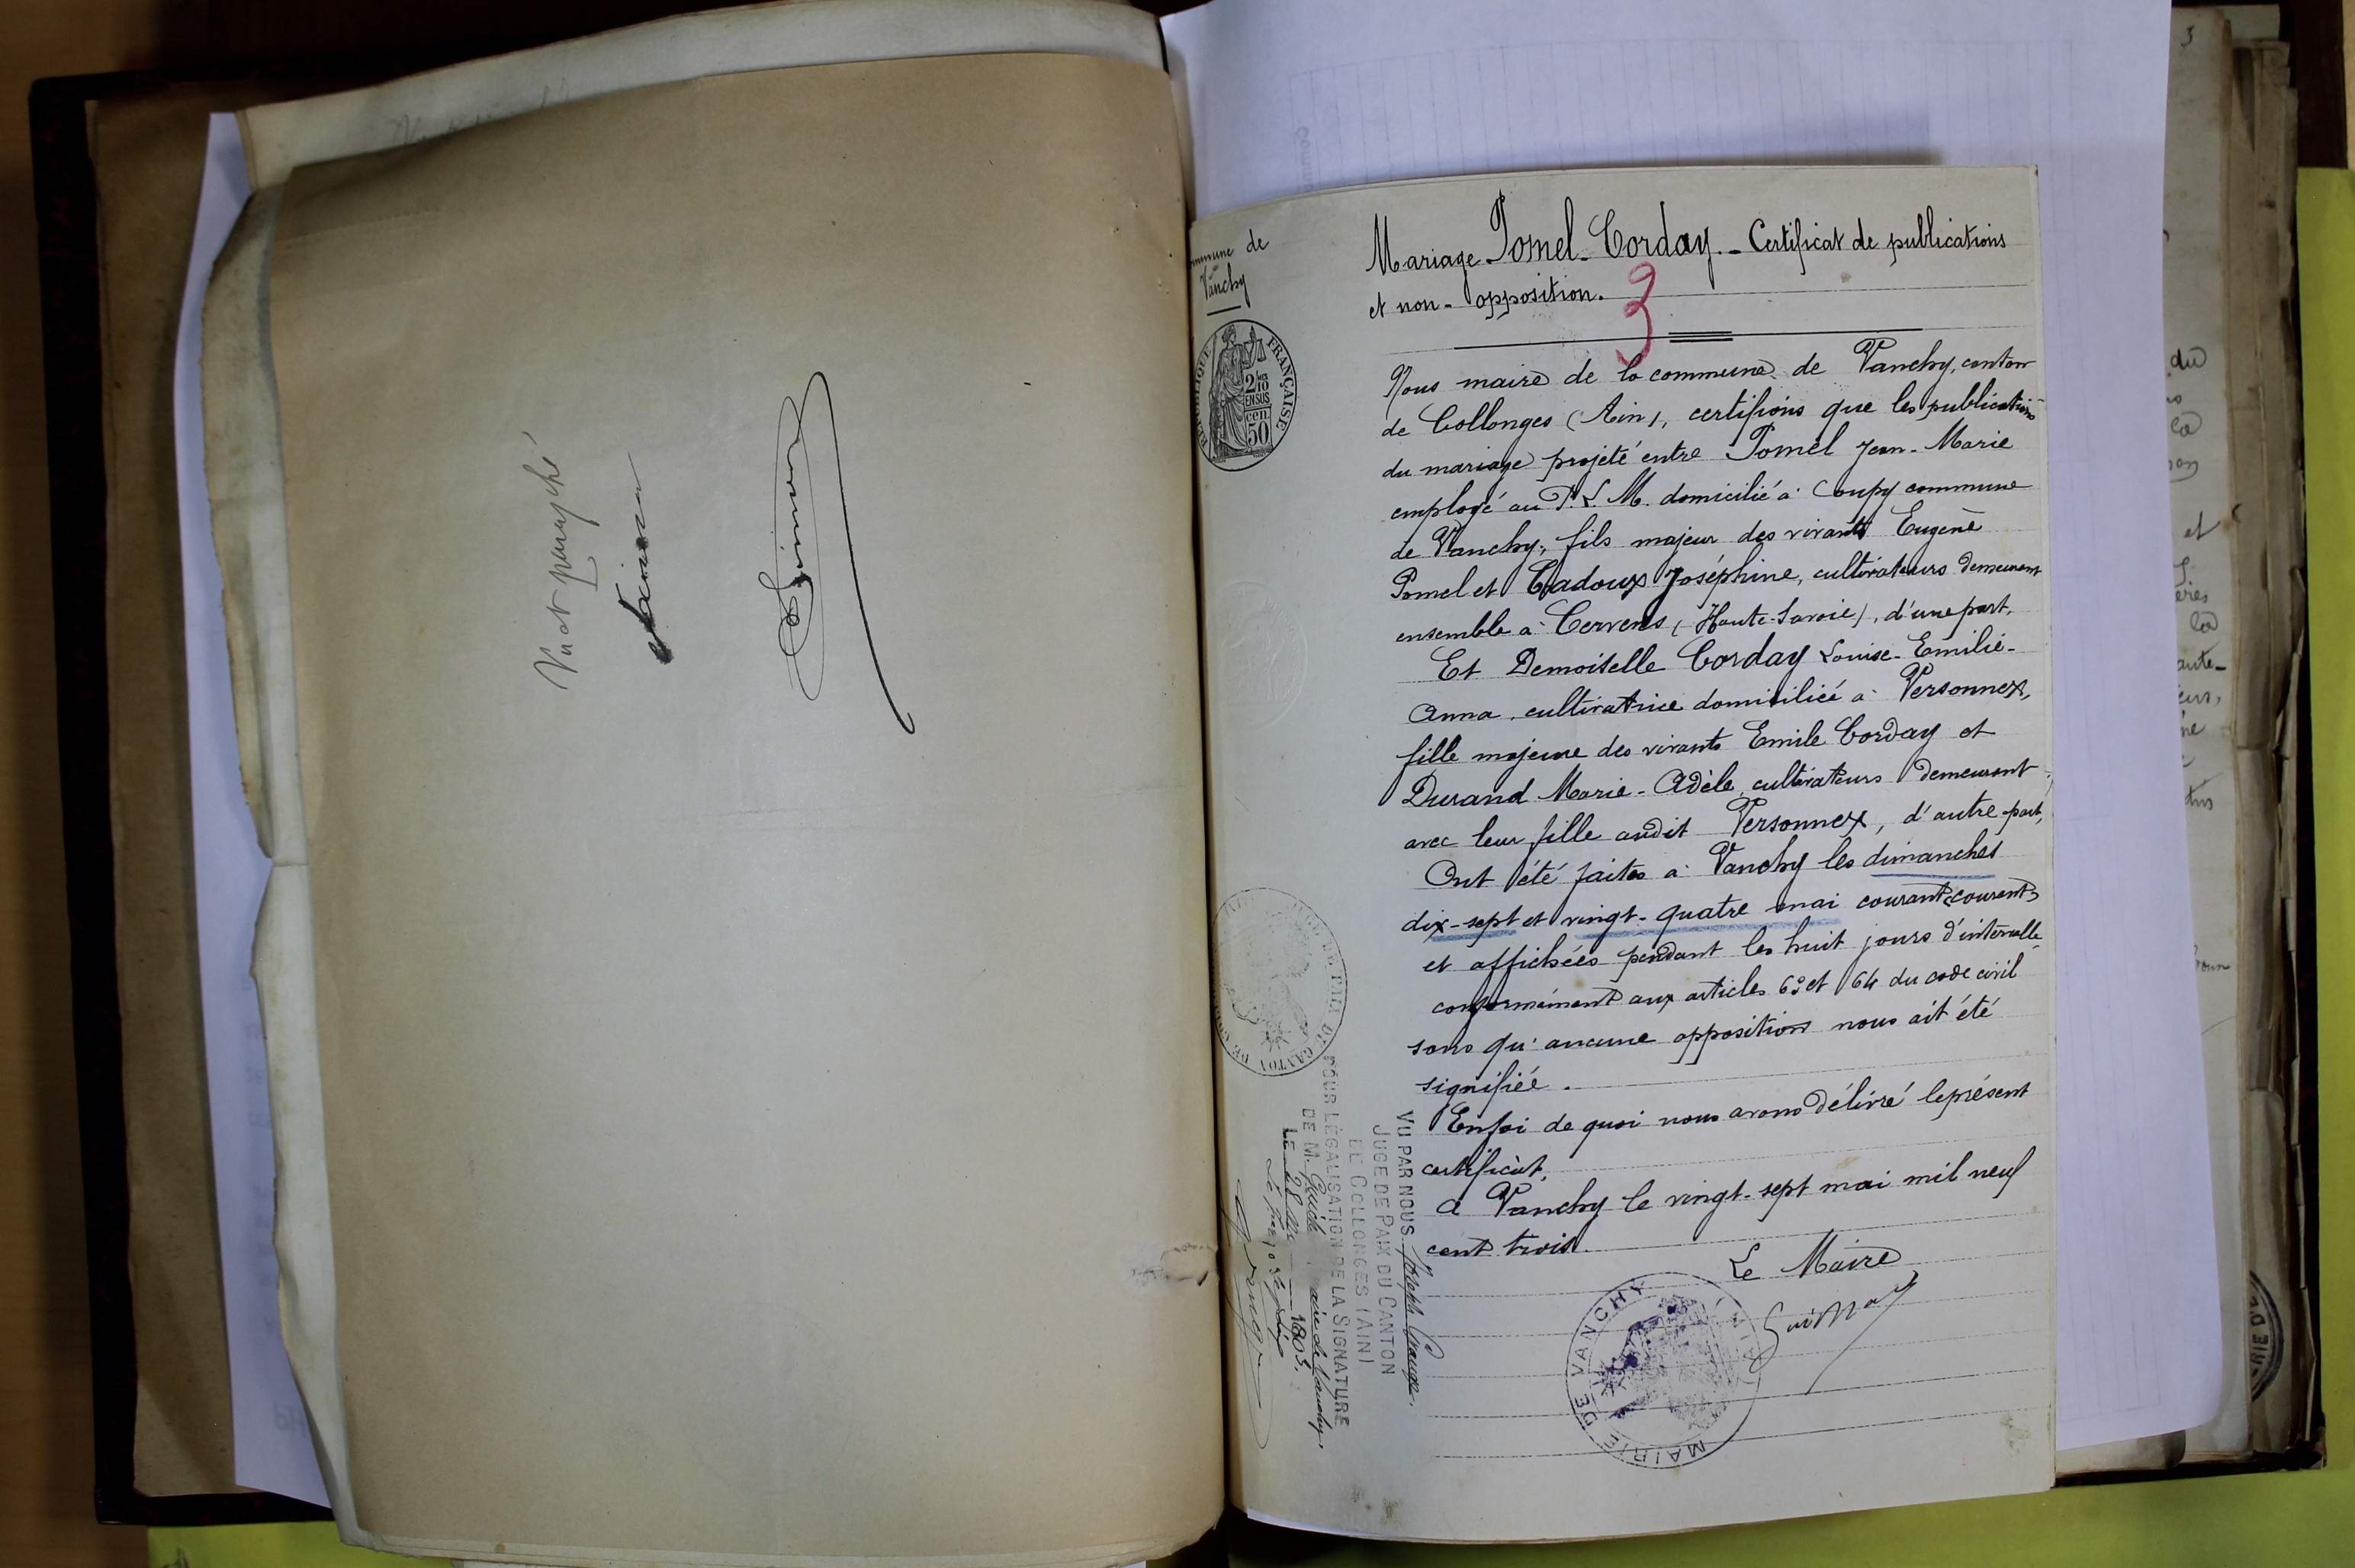 Vu et paraphé
Commune de
Vanchy
RÉPUBLIQUE FRANÇAISE
2/10
EN SUS
50 cen
Mariage Pomel-Corday. - Certificat de publications
et non-opposition.
3
Nous maire de la commune de Vanchy, canton
de Collonges (Ain), certifions que les publications
du mariage projeté entre Pomel Jean-Marie
employé au P. L. M. domicilié à Coupy commune
de Vanchy, fils majeur des vivants Eugène
Pomel et Cadoux Joséphine, cultivateurs demeurant
ensemble à Cervens (Haute-Savoie), d'une part,
Et Demoiselle Corday Louise-Emilie-
Anna, cultivatrice domiciliée à Versonnex,
fille majeure des vivants Emile Corday et
Durand Marie-Adèle, cultivateurs demeurant
avec leur fille audit Versonnex, d'autre part,
Ont été faites à Vanchy les dimanches
dix-sept et vingt-quatre mai courant courant
et affichées pendant les huit jours d'intervalle
conformément aux articles 63 et 64 du code civil
sans qu'aucune opposition nous ait été
signifiée.
En foi de quoi nous avons délivré le présent
certificat.
A Vanchy le vingt-sept mai mil neuf
cent trois.
Le Maire
MAIRIE DE VANCHY (AIN)
VU PAR NOUS Joseph
JUGE DE PAIX DU CANTON
DE COLLONGES (AIN)
POUR LÉGALISATION DE LA SIGNATURE
DE M. maire de Vanchy.
LE 28 1903.
Le juge de paix